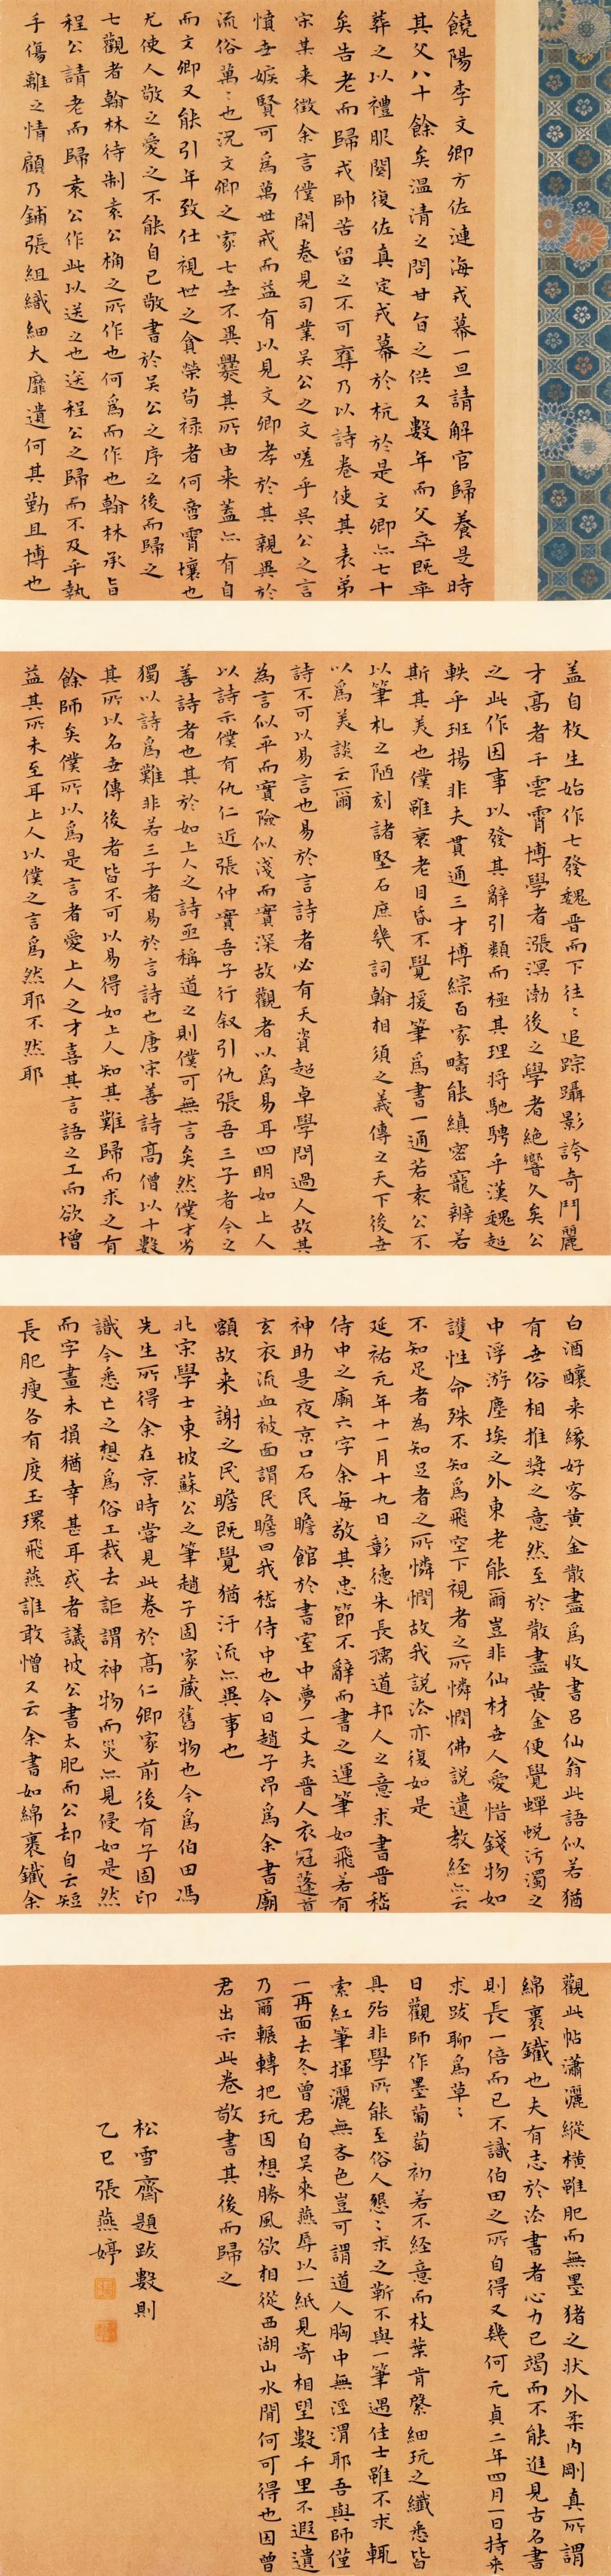 饒陽李文卿方佐漣海戎幕一旦請解官歸養是時
其父八十餘矣溫清之問甘旨之供又數年而父卒既卒
葬之以禮服闋復佐真定戎幕於杭於是文卿亦七十
矣告老而歸戎帥苦留之不可奪乃以詩卷使其表弟
宗其来徵余言僕開卷見司業吴公之文嗟乎吴公之言
憤世嫉賢可為萬世戒而益有以見文卿孝於其親異於
流俗萬〻也況文卿之家七世不異爨其所由来蓋亦有自
而文卿又能引年致仕視世之貪榮苟禄者何啻霄壤也
尤使人敬之愛之不能自已敬書於吴公之序之後而歸之
七觀者翰林待制袁公桷之所作也何為而作也翰林承旨
程公請老而歸袁公作此以送之也送程公之歸而不及乎執
手傷離之情顧乃鋪張組織細大靡遺何其勤且博也
盖自枚生始作七發魏晋而下往〻追踪躡影誇奇鬥麗
才高者干雲霄博學者漲溟渤後之學者絶響久矣公
之此作因事以發其辭引類而極其理将馳騁乎漢魏超
軼乎班揚非夫貫通三才博綜百家疇能縝密寵辬若
斯其美也僕雖衰老目昏不覺援筆為書一通若袁公不
以筆札之陋刻諸堅石庶幾詞翰相須之義傳之天下後世
以為美談云爾
詩不可以易言也易於言詩者必有天資超卓學問過人故其
為言似平而實險似淺而實深故觀者以為易耳四明如上人
以詩示僕有仇仁近張仲實吾子行叙引仇張吾三子者今之
善詩者也其於如上人之詩亟稱道之則僕可無言矣然僕才劣
獨以詩為難非若三子者易於言詩也唐宋善詩高僧以十數
其所以名世傳後者皆不可以易得如上人知其難歸而求之有
餘師矣僕所以為是言者愛上人之才喜其言語之工而欲增
益其所未至耳上人以僕之言為然耶不然耶
白酒釀来緣好客黄金散盡為收書吕仙翁此語似若猶
有世俗相推奖之意然至於散盡黄金便覺蟬蜕污濁之
中浮游塵埃之外東老能爾豈非仙材世人愛惜錢物如
護性命殊不知為飛空下視者之所憐憫佛説遺教經亦云
不知足者為知足者之所憐憫故我説法亦復如是
延祐元年十一月十九日彰德朱長孺道邦人之意求書晋嵇
侍中之廟六字余每敬其忠節不辭而書之運筆如飛若有
神助是夜京口石民瞻館於書室中夢一丈夫晋人衣冠蓬首
玄衣流血被面謂民瞻曰我嵇侍中也今日趙子昂為余書廟
額故来謝之民瞻既覺猶汗流亦異事也
北宗學士東坡蘇公之筆趙子固家蔵舊物也今為伯田馮
先生所得余在京時嘗見此卷於高仁卿家前後有子固印
識今悉亡之想為俗工裁去詎謂神物而災亦見侵如是然
而字畫未損猶幸甚耳或者議坡公書太肥而公却自云短
長肥瘦各有度玉環飛燕誰敢憎又云余書如綿裹鐵余
觀此帖瀟灑縱横雖肥而無墨猪之状外柔内剛真所謂
綿裹鐵也夫有志於法書者心力已竭而不能進見古名書
則長一倍而已不識伯田之所自得又幾何元貞二年四月一日持来
求跋聊為草〻
日觀師作墨葡萄初若不经意而枝葉肯綮細玩之纖悉皆
具殆非學所能至俗人懇〻求之靳不與一筆遇佳士雖不求輒
索紅筆揮灑無吝色豈可謂道人胸中無涇渭耶吾與師僅
一再面去冬曾君自吴来燕辱以一紙見寄相望數千里不遐遺
乃爾輾轉把玩因想勝風欲相從西湖山水間何可得也因曾
君出示此卷敬書其後而歸之
松雪齋題跋數則
乙巳張燕婷